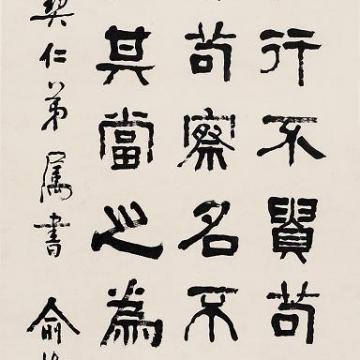 行不貴苟
苟察名不
其當之為
契仁弟属書 俞